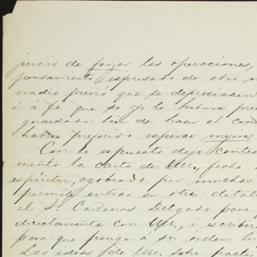 juicio de forzar las operaciones,
pensamiento espresado de otro m
nadie pensó que se depreciaden
i á fe que si yo lo hubiera
guardado bien de hacer el con
haber preferido esperar
Con lo espuesto dejo contes
mente la carta de Ud., fecha
espíritu agobiado por muchos
permite entrar en otros detal
el Sr Cárdenas Delgado para
directamente con Ud., i escribi
para que ponga á su orden lo
Las ideas de Ud. sobre